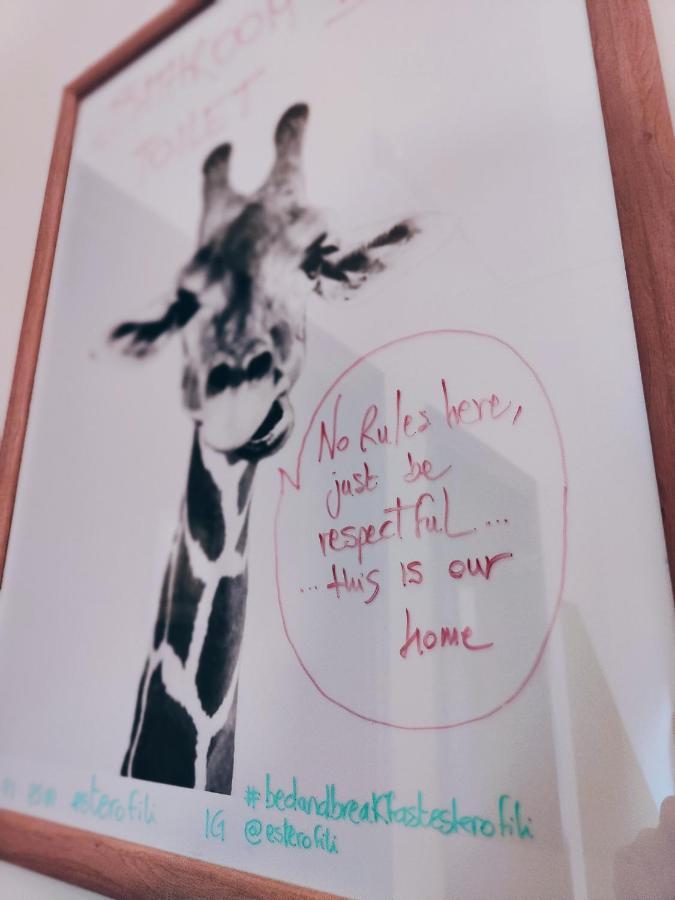 TOILET
No Rules here,
just be
respectful ...
... this is our
home
#bedandbreakfastesterofili
esterofili
IG @esterofili